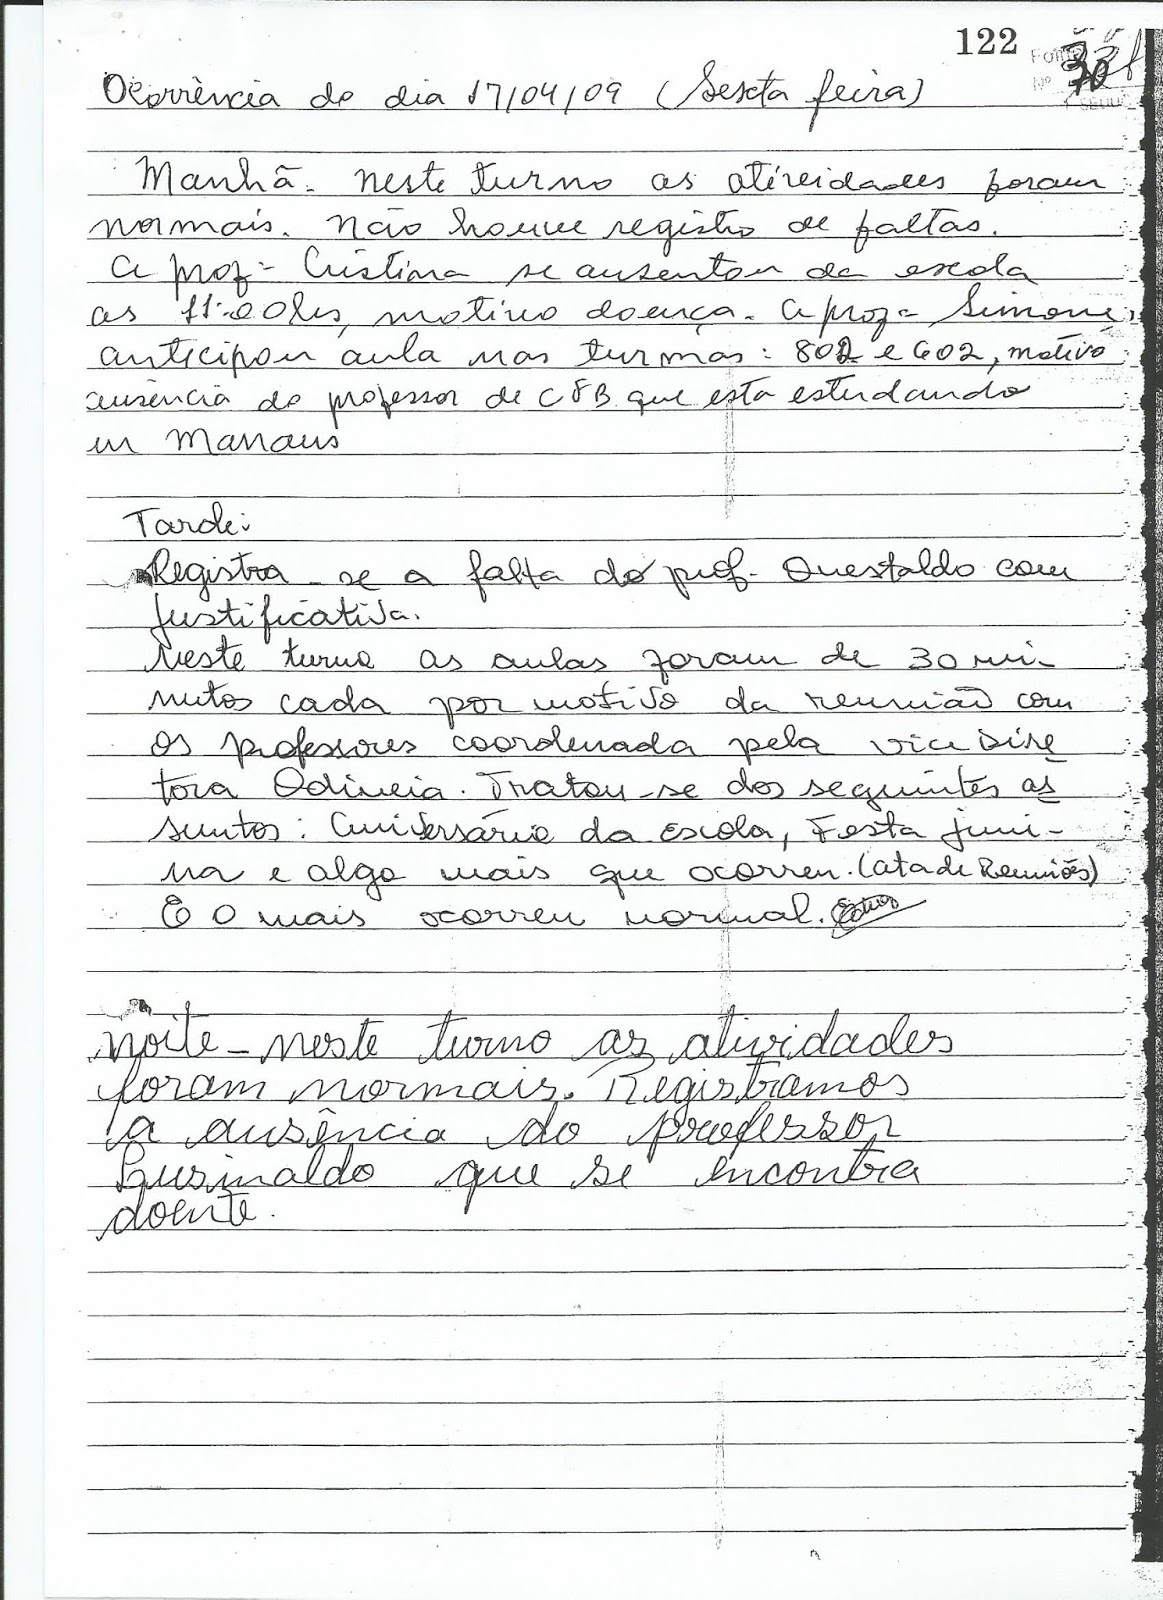 122
Folha
Nº 30
Ocorrência do dia 17/04/09 (Sexta feira)
Manhã - neste turno as atividades foram
normais. Não houve registro de faltas.
A profª Cristina se ausentou da escola
as 11:00hs, motivo doença. A profª Simone,
anticipou aula nas turmas: 802 e 602, motivo
ausência do professor de CFB que esta estudando
em Manaus
Tarde:
Registra-se a falta do prof. com
justificativa.
Neste turno as aulas foram de 30 mi-
nutos cada por motivo da reunião com
os professores coordenada pela vice dire
tora Odineia. Tratou-se dos seguintes as
suntos: Aniversário da Escola, Festa juni-
na e algo mais que ocorreu. (ata de Reuniões)
E o mais ocorreu normal.
Noite - neste turno as atividades
foram normais. Registramos
a ausência do professor
Lusinaldo que se encontra
doente.